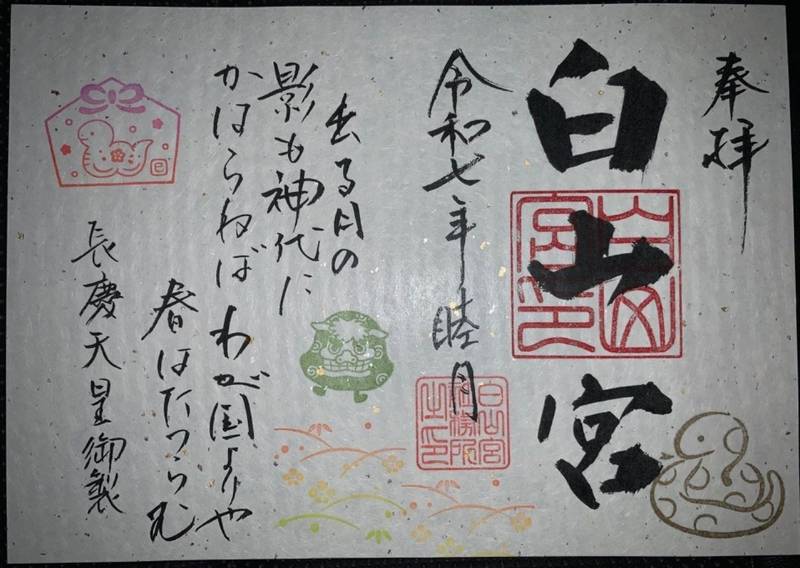 奉拝
白山宮
令和七年睦月
白山宮
社務所
之印
出る日の
影も神代に
かはらねば
わが国よりや
春はたつらむ
長慶天皇御製
巳